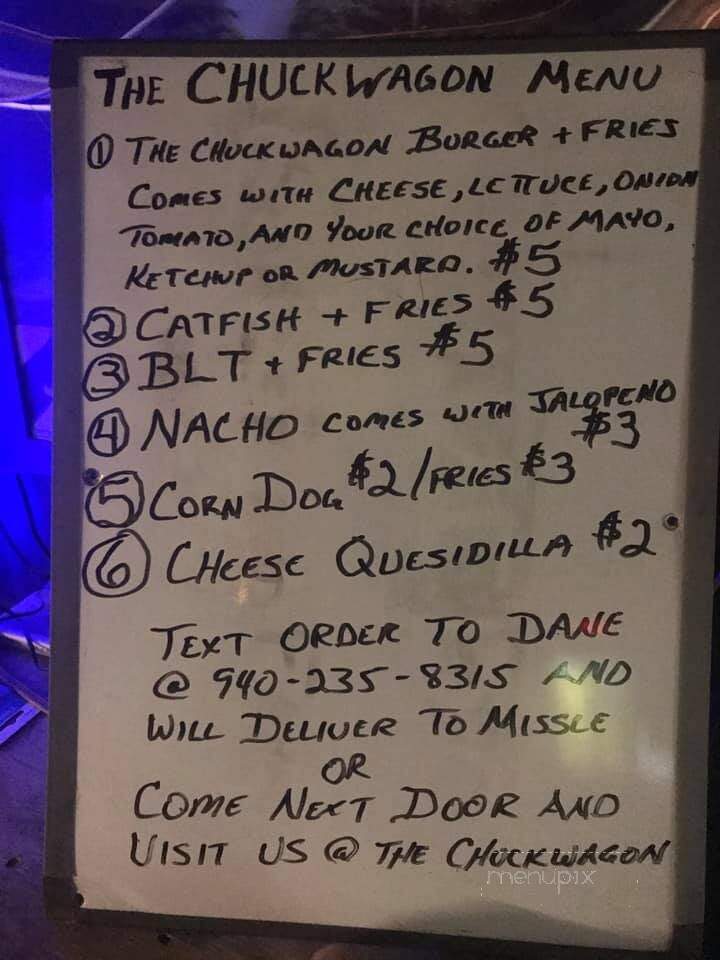 THE CHUCKWAGON MENU
① THE CHUCKWAGON BURGER + FRIES
COMES WITH CHEESE, LETTUCE, ONION
TOMATO, AND YOUR CHOICE OF MAYO,
KETCHUP OR MUSTARD. $5
② CATFISH + FRIES $5
③ BLT + FRIES $5
④ NACHO COMES WITH JALOPENO
$3
⑤ CORN DOG $2/FRIES $3
⑥ CHEESE QUESIDILLA $2
TEXT ORDER TO DANE
@ 940-235-8315 AND
WILL DELIVER TO MISSLE
OR
COME NEXT DOOR AND
VISIT US @ THE CHUCKWAGON
menupix